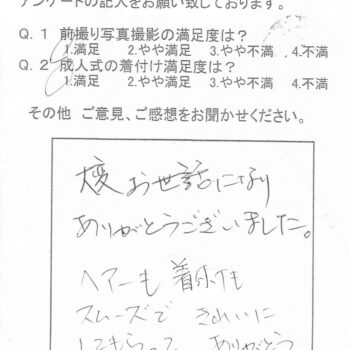 アンケートの記入をお願い致しております。
Q. 1 前撮り写真撮影の満足度は？
1.満足 2.やや満足 3.やや不満 4.不満
Q. 2 成人式の着付け満足度は？
1.満足 2.やや満足 3.やや不満 4.不満
その他 ご意見、ご感想をお聞かせください。
大変お世話になり
ありがとうございました。
ヘアーも 着付けも
スムーズで きれいに
してもらって ありがとう